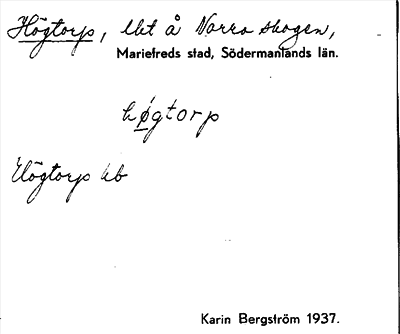 Högtorp, lht å Norra skogen,
Mariefreds stad, Södermanlands län.
høgtorp
Högtorp hb
Karin Bergström 1937.